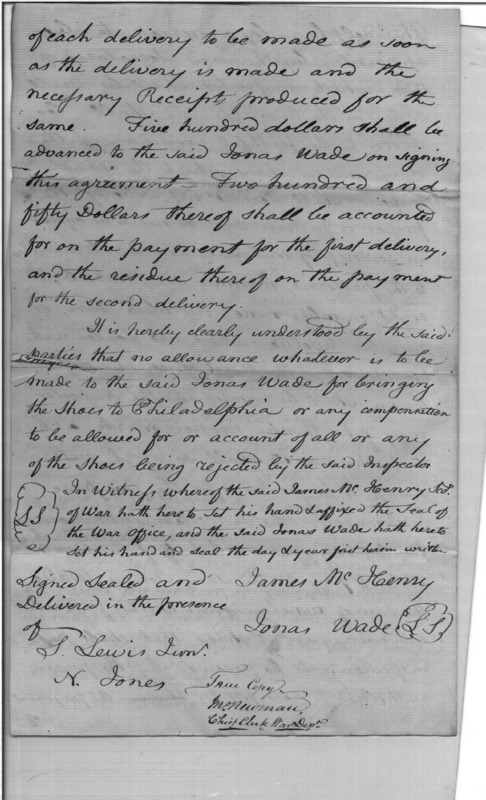 of each delivery to be made as soon
as the delivery is made and the
necessary Receipts produced for the
same. Five hundred dollars shall be
advanced to the said Jonas Wade on signing
this agreement – Two hundred and
fifty Dollars thereof shall be accounted
for on the payment for the first delivery,
and the residue thereof on the payment
for the second delivery.
It is hereby clearly understood by the said
parties that no allowance whatever is to be
made to the said Jonas Wade for bringing
the Shoes to Philadelphia or any compensation
to be allowed for or account of all or any
of the Shoes being rejected by the said Inspector
In Witness whereof the said James Mc. Henry Secy.
of War hath here to set his hand & affixed the Seal of
the War Office, and the said Jonas Wade hath hereto
Set his hand and seal the day & year first herein written
LS
Signed Sealed and James Mc Henry
Delivered in the presence
of Jonas Wade LS
S. Lewis Junr.
N. Jones True Copy
Newman,
Chief Clerk War Dept.